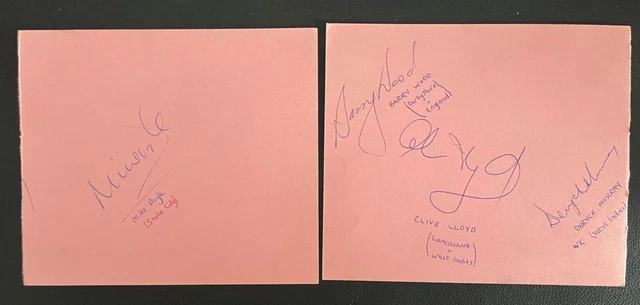 Mike Doyle
(Stoke City)
Barry Wood
BARRY WOOD
(Derbyshire
+
England)
CLIVE LLOYD
(Lancashire
+
West Indies)
Deryck Murray
DERYCK MURRAY
WK (West Indies)